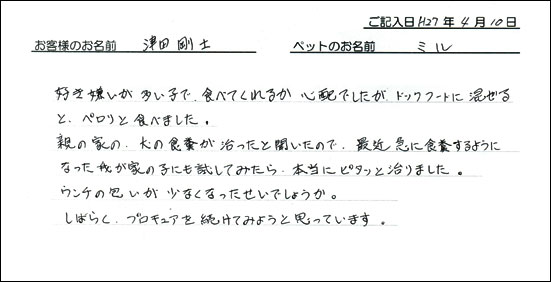 ご記入日 H27年4月10日
お客様のお名前 津田剛士 ペットのお名前 ミル
好き嫌いが多い子で、食べてくれるか心配でしたが、ドックフートに混ぜる
と、ペロリと食べました。
親の家の、犬の食糞が治ったと聞いたので、最近急に食糞するように
なった我が家の子にも試してみたら、本当にピタッと治りました。
ウンチの匂いが少なくなったせいでしょうか。
しばらく、プロキュアを続けてみようと思っています。